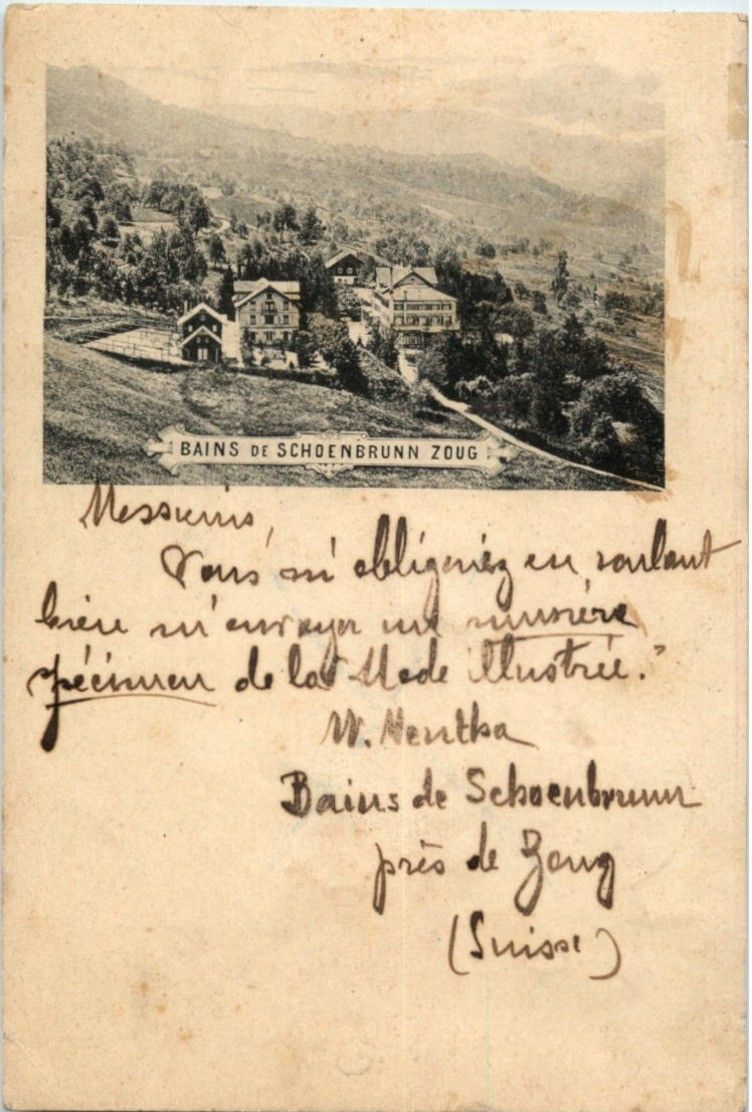 BAINS DE SCHOENBRUNN ZOUG
Messieurs,
Vous m'obligeriez en voulant
bien m'envoyer un numéro
spécimen de la Mode illustrée."
W. Mentha
Bains de Schoenbrunn
près de Zoug
(Suisse)